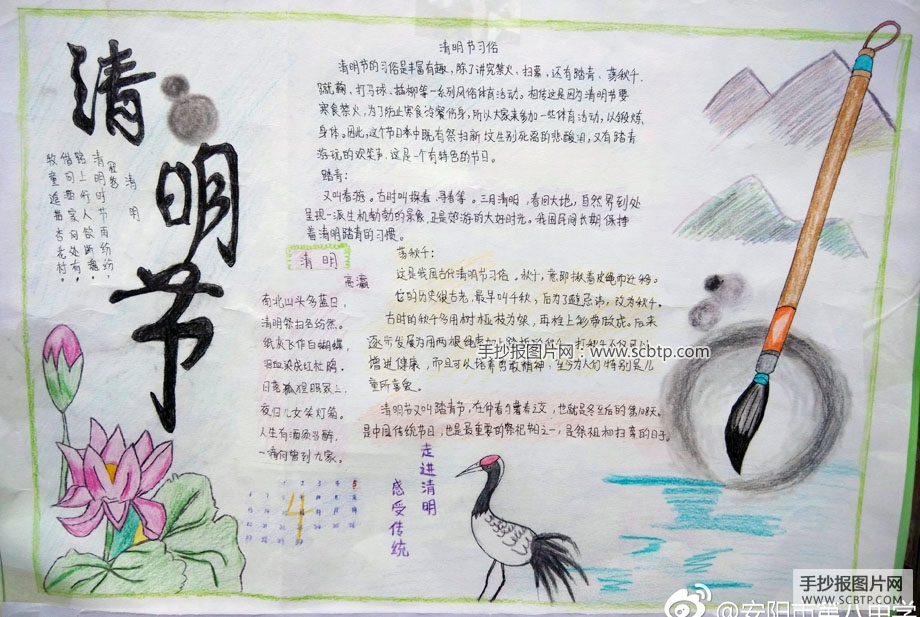 清明节
清明节习俗
清明节的习俗是丰富有趣,除了讲究禁火、扫墓,还有踏青、荡秋千、
蹴鞠、打马球、插柳等一系列风俗体育活动。相传这是因为清明节要
寒食禁火,为了防止寒食冷餐伤身,所以大家来参加一些体育活动,以锻炼
身体。因此,这个节日中既有祭扫新坟生别死离的悲酸泪,又有踏青
游玩的欢笑声,这是一个有特色的节日。
踏青:
又叫春游。古时叫探春、寻春等。三月清明,春回大地,自然界到处
呈现一派生机勃勃的景象,正是郊游的大好时光。我国民间长期保持
着清明踏青的习惯。
荡秋千:
这是我国古代清明节习俗。秋千,意即揪着皮绳而迁移。
它的历史很古老,最早叫千秋,后为了避忌讳,改为秋千。
古时的秋千多用树桠枝为架,再栓上彩带做成。后来
逐步发展为用两根绳索加上踏板的
增进健康,而且可以培养勇敢精神,至今为人们特别是儿
童所喜爱。
清明节又叫踏青节,在仲春与暮春之交,也就是冬至后的第108天。
是中国传统节日,也是最重要的祭祀节日之一,是祭祖和扫墓的日子。
清明
清明时节雨纷纷,
路上行人欲断魂。
借问酒家何处有,
牧童遥指杏花村。
清明
高瀛
南北山头多墓田,
清明祭扫各纷然。
纸灰飞作白蝴蝶,
泪血染成红杜鹃。
日落狐狸眠冢上,
夜归儿女笑灯前。
人生有酒须当醉,
一滴何曾到九泉。
4
走进清明
感受传统
手抄报图片网:www.scbtp.com
手抄报图片网
WWW.SCBTP.COM
@安阳市第八中学